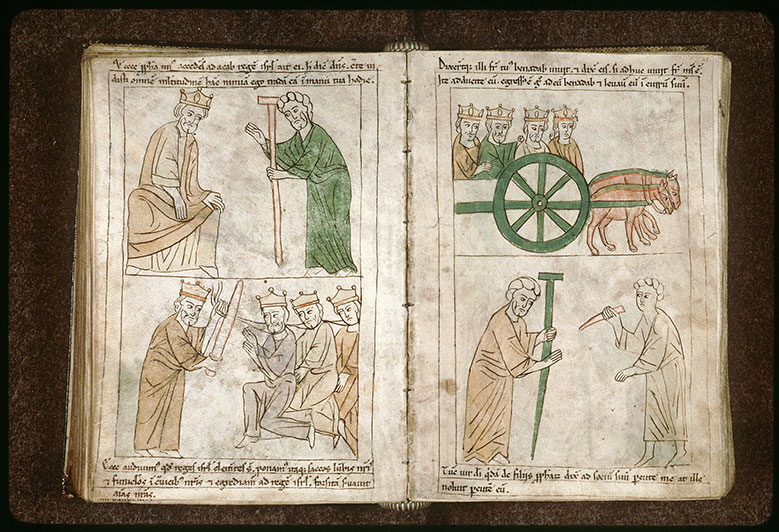 Et ecce ppha un⁹ accedēs ad acab regē isrl̄ ait ei. h̄ dic̄ dn̄s. c̄te vi
disti omnē multitudinē hāc nimiā ego tradā eā i manu tua hodie.
Ecce audiuim⁹ qd̄ reges isrl̄ clemētes s̄. ponam⁹ itaq; saccos lūbis nr̄i
& funiclos i ceruicib⁹ nr̄is & egrediam ad regē isrl̄. forsitā saluabit
aīas nr̄as.
Dixertq; illi fr̄ tu⁹ benadab uiuit. & dix̄ eis. si adhuc uiuit fr̄ m̄s ē.
ite adducite eū. egressꝰ ē g̊ ad eū benadab & leuau eū i currū suū.
Tūc uir dī q̇dā de filijs ꝓphar̄ dix̄ ad sociū suū ꝑcute me at ille
noluit ꝑcute eū.